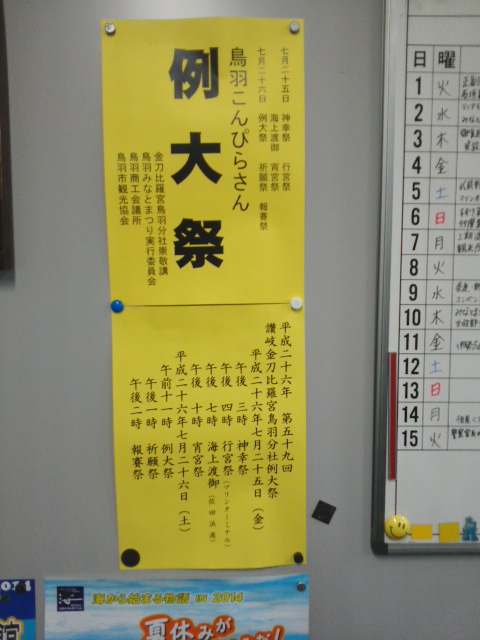 七月二十五日　神幸祭　行宮祭
海上渡御　宵宮祭
七月二十六日　例大祭　祈願祭　報賽祭
鳥羽こんぴらさん
例大祭
金刀比羅宮鳥羽分社崇敬講
鳥羽みなとまつり実行委員会
鳥羽商工会議所
鳥羽市観光協会
平成二十六年　第五十九回
讃岐金刀比羅宮鳥羽分社例大祭
平成二十六年七月二十五日（金）
午後　三時　神幸祭
午後　四時　行宮祭（マリンターミナル）
午後　七時　海上渡御（佐田浜港）
午後　十時　宵宮祭
平成二十六年七月二十六日（土）
午前十一時　例大祭
午後一時　祈願祭
午後二時　報賽祭
日 曜
1 火
2 水
3 木
4 金
5 土
6 日
7 月
8 火
9 水
10 木
11 金
12 土
13 日
14 月
15 火
海から始まる物語 IN 2014
夏休みが